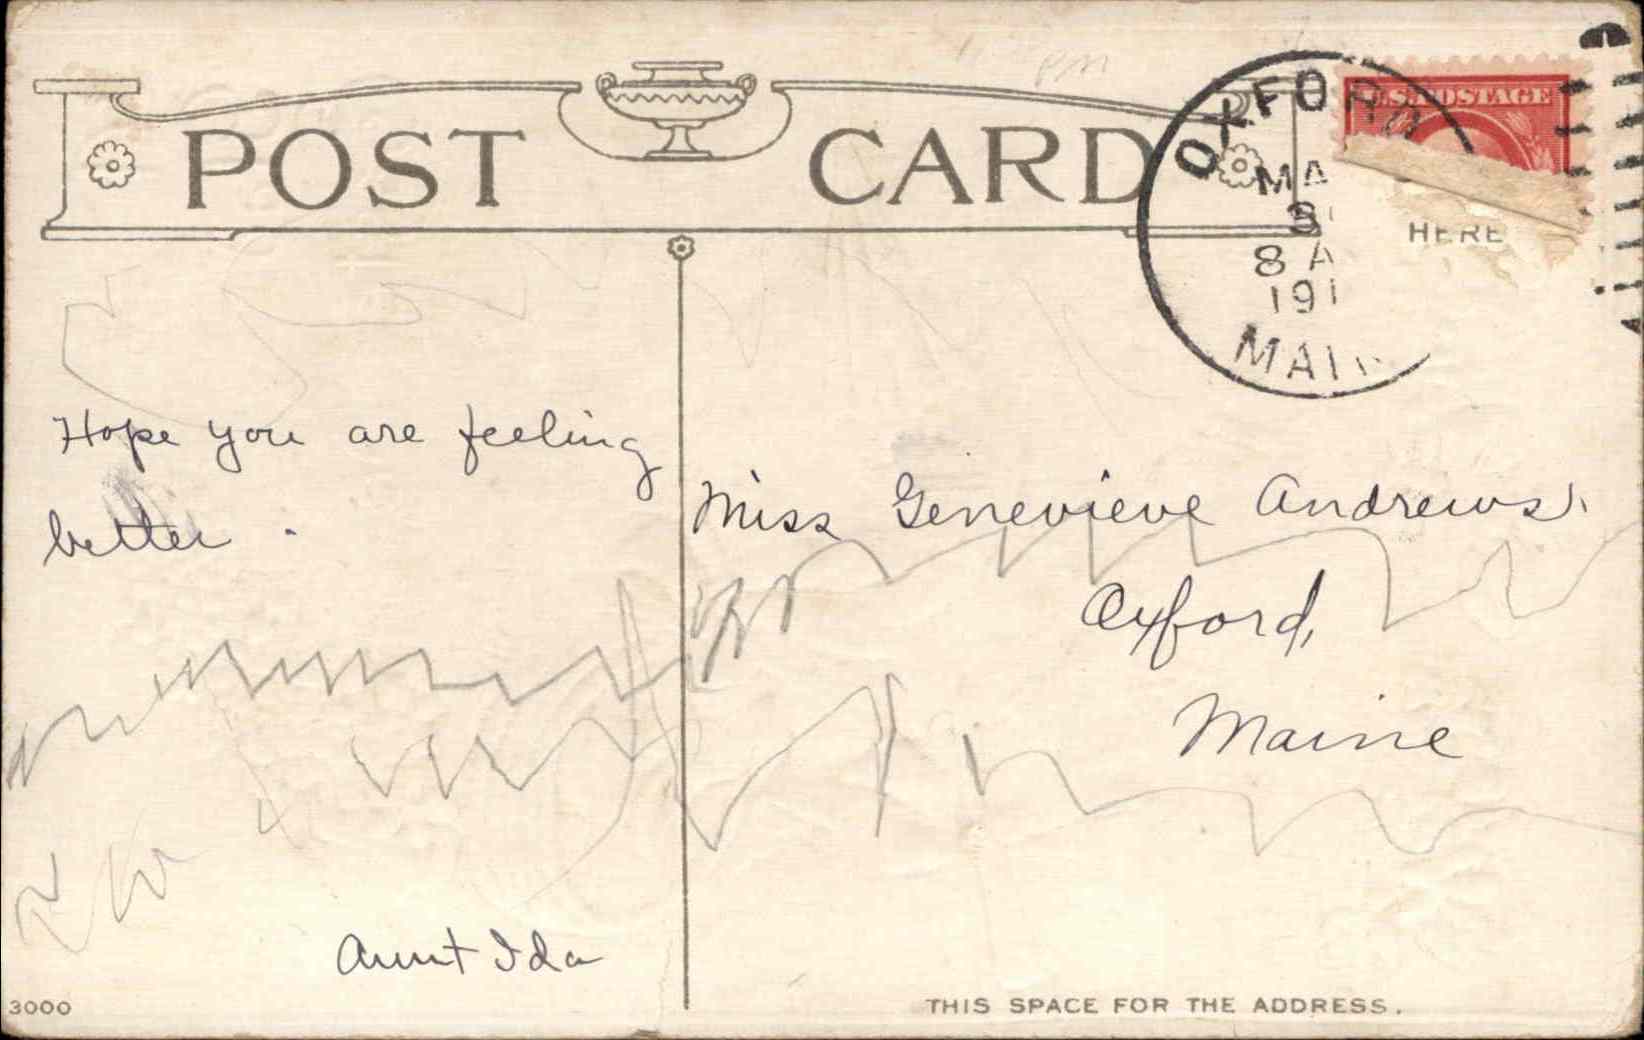 POST CARD
U.S. POSTAGE
OXFORD
MA
3
8 A
191
MAIN
HERE
Hope you are feeling
better.
Miss Genevieve Andrews,
Oxford,
Maine
Aunt Ida
3000
THIS SPACE FOR THE ADDRESS.